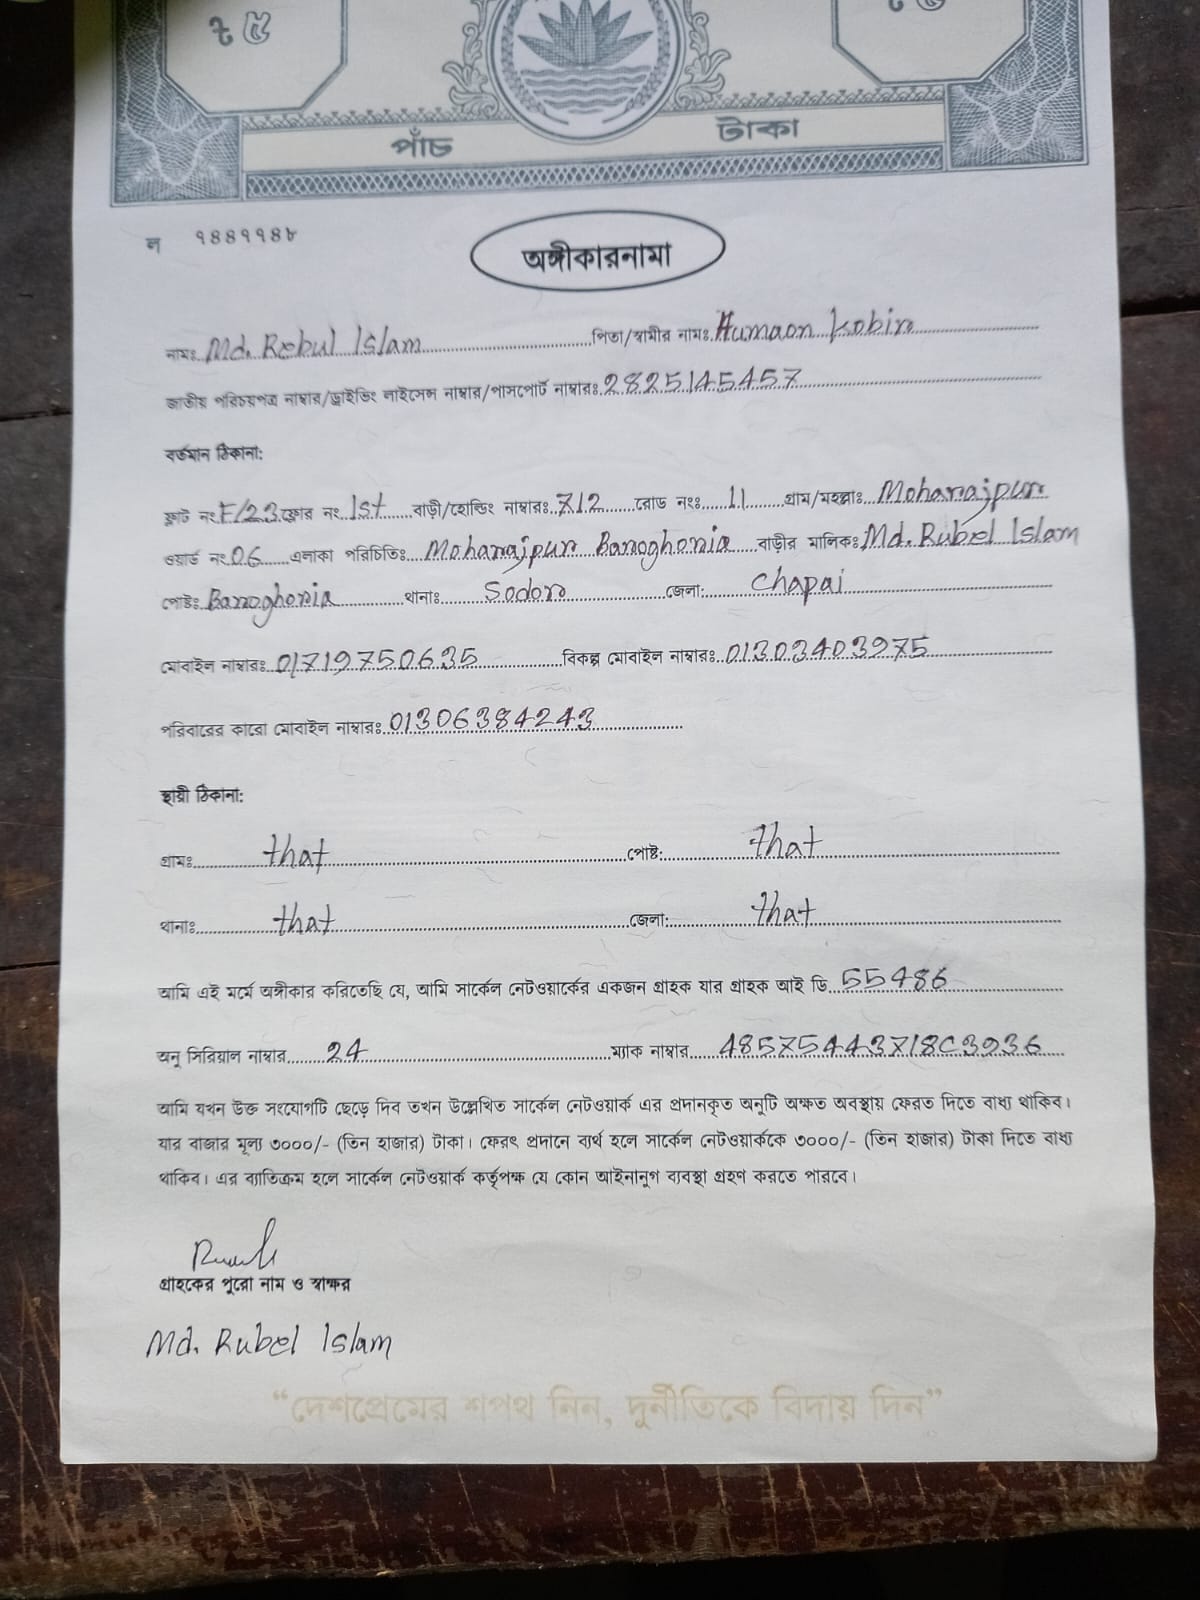 ৳ ৫
পাঁচ টাকা
ল ৭৪৪৭৭৪৮
অঙ্গীকারনামা
নামঃ Md. Rebul Islam পিতা/স্বামীর নামঃ Humaon Kobir
জাতীয় পরিচয়পত্র নাম্বার/ড্রাইভিং লাইসেন্স নাম্বার/পাসপোর্ট নাম্বারঃ 2825145457
বর্তমান ঠিকানা:
ফ্লাট নং F/23 ফ্লোর নং 1st বাড়ী/হোল্ডিং নাম্বারঃ 712 রোড নংঃ 11 গ্রাম/মহল্লাঃ Moharajpur
ওয়ার্ড নং 06 এলাকা পরিচিতিঃ Moharajpur Banoghonia বাড়ীর মালিকঃ Md. Rubel Islam
পোষ্টঃ Banoghonia থানাঃ Sodor জেলা: Chapai
মোবাইল নাম্বারঃ 01719750635 বিকল্প মোবাইল নাম্বারঃ 01303403975
পরিবারের কারো মোবাইল নাম্বারঃ 01306384243
স্থায়ী ঠিকানা:
গ্রামঃ that পোষ্ট: that
থানাঃ that জেলা: that
আমি এই মর্মে অঙ্গীকার করিতেছি যে, আমি সার্কেল নেটওয়ার্কের একজন গ্রাহক যার গ্রাহক আই ডি 55486
অনু সিরিয়াল নাম্বার 24 ম্যাক নাম্বার 48575443718C3936
আমি যখন উক্ত সংযোগটি ছেড়ে দিব তখন উল্লেখিত সার্কেল নেটওয়ার্ক এর প্রদানকৃত অনুটি অক্ষত অবস্থায় ফেরত দিতে বাধ্য থাকিব।
যার বাজার মূল্য ৩০০০/- (তিন হাজার) টাকা। ফেরৎ প্রদানে ব্যর্থ হলে সার্কেল নেটওয়ার্ককে ৩০০০/- (তিন হাজার) টাকা দিতে বাধ্য
থাকিব। এর ব্যাতিক্রম হলে সার্কেল নেটওয়ার্ক কর্তৃপক্ষ যে কোন আইনানুগ ব্যবস্থা গ্রহণ করতে পারবে।
গ্রাহকের পুরো নাম ও স্বাক্ষর
Md. Rubel Islam
“দেশপ্রেমের শপথ নিন, দুর্নীতিকে বিদায় দিন”